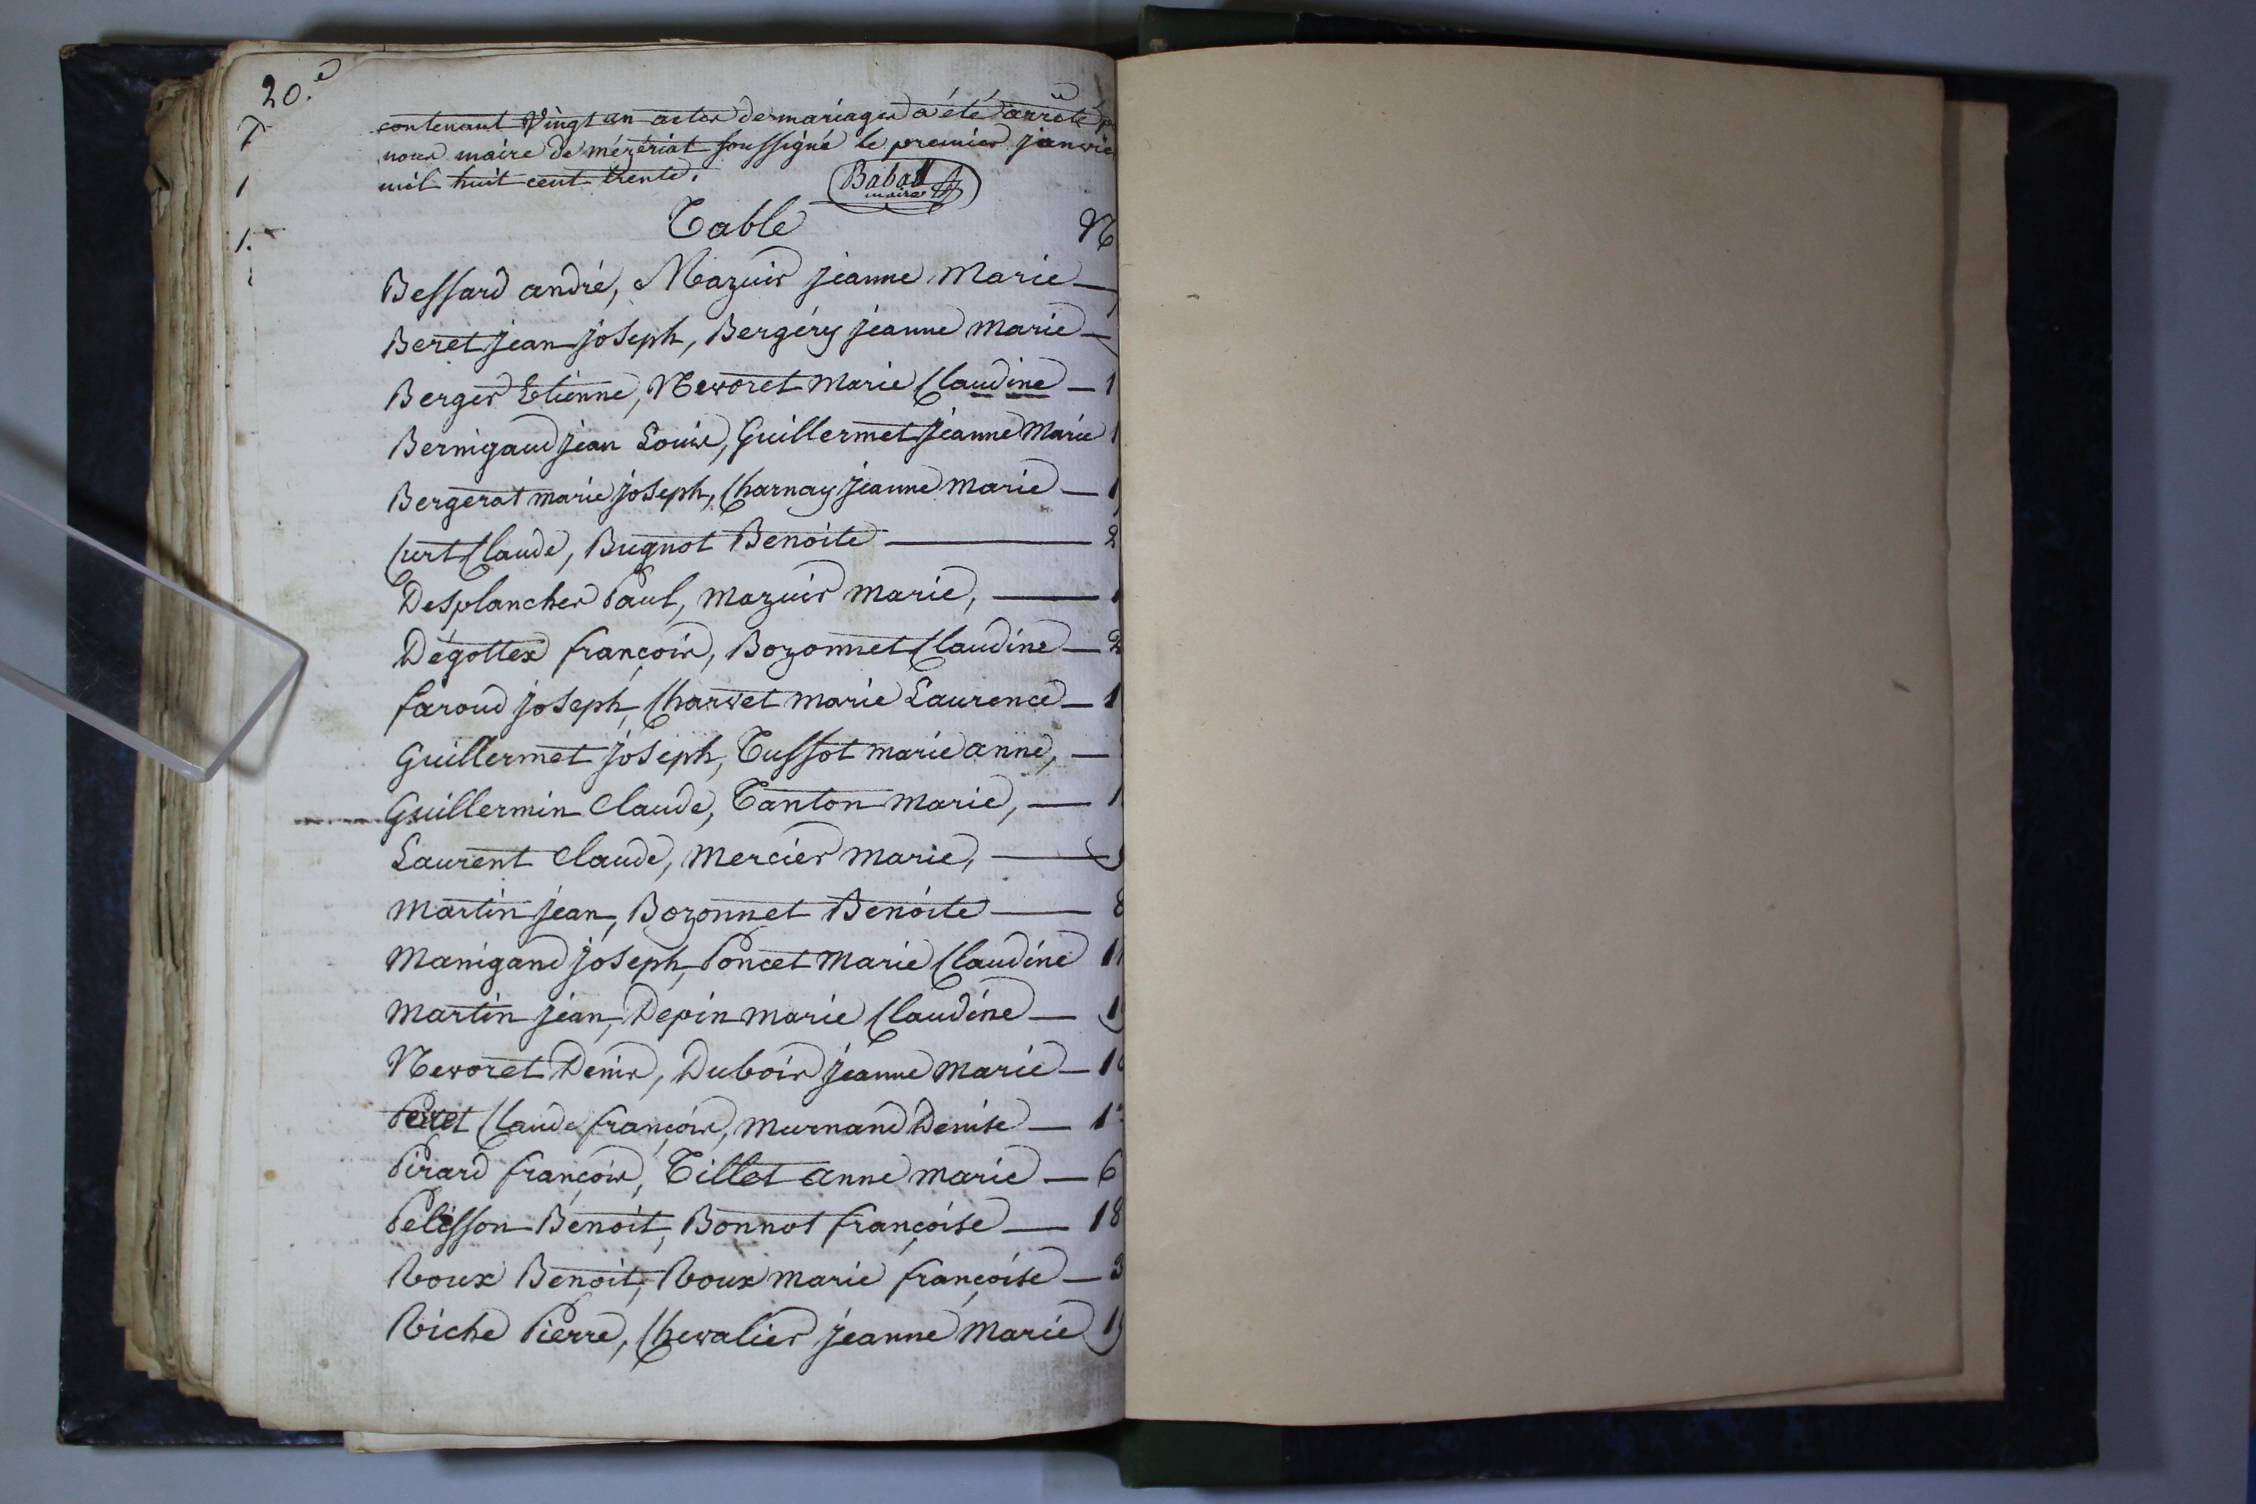 20.e
contenant vingt un actes de mariages a été arrêté
nous maire de mézériat soussigné le premier janvie
mil huit cent trente.
Babad
maire
Table
N
Bessard andré, Mazuir jeanne Marie
Beret jean joseph, Bergéry jeanne marie
Berger Etienne, Nevoret Marie Claudine — 1
Bernigaud jean Louis, Guillermet jeanne Marie 1
Bergerat marie joseph, Charnay jeanne marie — 1
Curt Claude, Bugnot Benoite — 2
Desplanches Paul, mazuir marie, — 1
Dégottex françois, Bozonnet Claudine — 2
faroud joseph, Charvet marie Laurence — 1
Guillermet joseph, Tussot marie anne, —
Guillermin Claude, Tanton marie, — 1
Laurent Claude, mercier marie, —
martin jean, Bozonnet Benoite — 8
Manigand joseph, Poncet Marie Claudine 11
Martin jean, Depin marie Claudine — 1
Nevoret Denis, Dubois jeanne marie — 1
Peret Claude françois, murnand Denise — 1
Pirard françois, Tillet anne marie — 6
Pelisson Benoit, Bonnot françoise — 18
Roux Benoit, Roux marie françoise — 3
Riche Pierre, Chevalier jeanne Marie 1